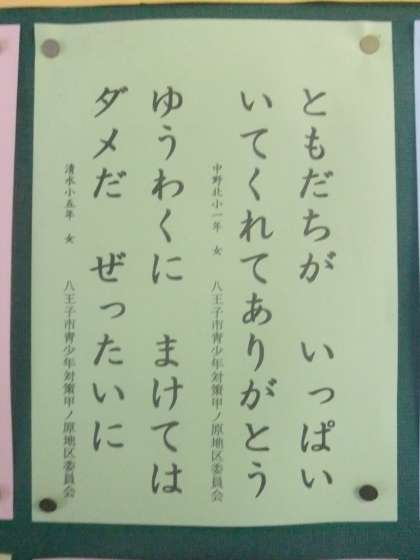 ともだちが　いっぱい
いてくれてありがとう
中野北小一年　女　八王子市青少年対策甲ノ原地区委員会
ゆうわくに　まけては
ダメだ　ぜったいに
清水小五年　女　八王子市青少年対策甲ノ原地区委員会